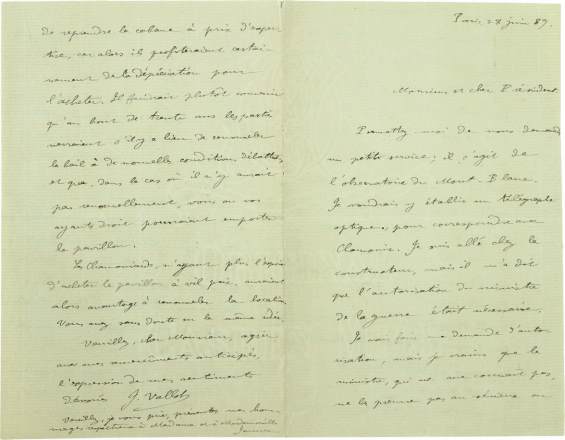 Paris 28 juin 89.
Monsieur et cher Président
Permettez moi de vous demander
un petit service; il s'agit de
l'observatoire du Mont-Blanc.
Je voudrais y établir un télégraphe
optique, pour correspondre avec
Chamonix. Je suis allé chez le
constructeur, mais il m'a dit
que l'autorisation du ministre
de la guerre était nécessaire.
Je vais faire ma demande d'auto
risation, mais je crains que le
ministre, qui ne me connait pas,
ne la prenne pas au sérieux ou
de reprendre la cabane à prix d'exper
tise, car alors ils profiteraient certai-
nement de la dépréciation pour
l'acheter. Il faudrait plutôt convenir
qu'au bout de trente ans les partis
verraient s'il y a lieu de renouveler
le bail à de nouvelles conditions débattues,
et que, dans le cas où il n'y aurait
pas renouvellement, vous ou vos
ayants droit pourraient emporter
le pavillon.
Les Chamoniards, n'ayant plus l'espoir
d'acheter le pavillon à vil prix, auraient
alors avantage à renouveler la location.
Vous avez sans doute eu la même idée.
Veuillez, cher Monsieur, agréer
avec mes remerciments anticipés,
l'expression de mes sentiments
dévoués J. Vallot
Veuillez, je vous prie, présenter mes hom
mages à Madame et à Mademoiselle
Janssen